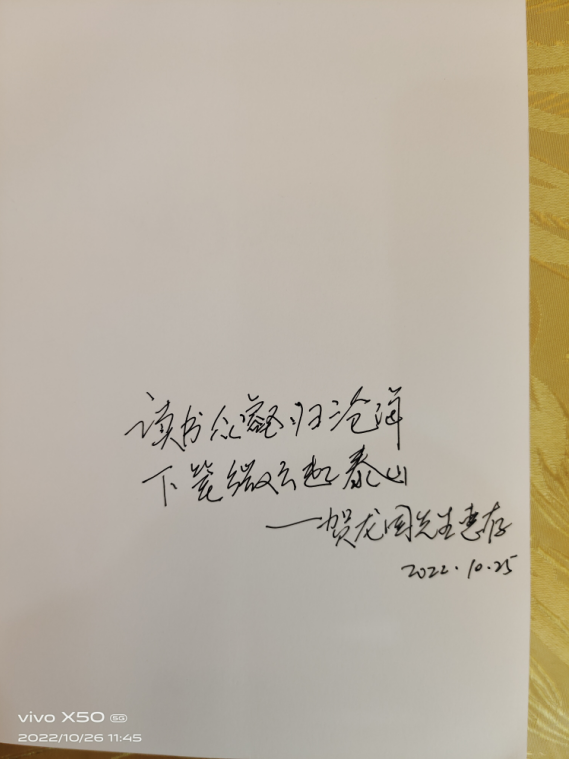 读书众壑归沧海
下笔微云起泰山
——贺龙国先生惠存
2022.10.25
vivo X50 5G
2022/10/26 11:45